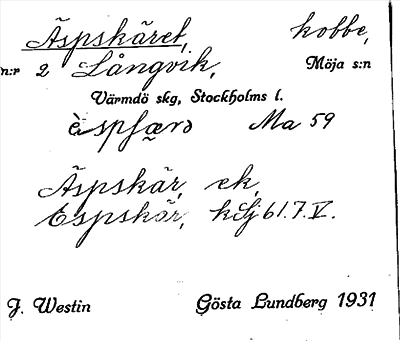 Äspskäret, kobbe,
n:r 2 Långvik, Möja s:n
Värmdö skg, Stockholms l.
Ma 59
Äspskär, ek,
Espskär, kilj 61.7.V.
J. Westin Gösta Lundberg 1931